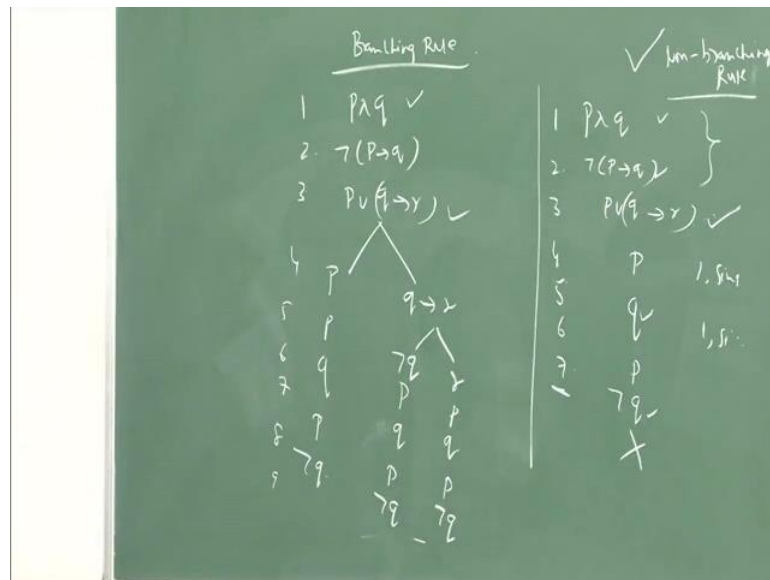 Branching Rule
1 P∧q ✓
2. ¬(P→q)
3 P∨(q→r) ✓
4 P
q→r
5 P
6 q ¬q r
7 P P
8 P q q
9 ¬q P P
¬q ¬q
✓ Non-branching
Rule
1 P∧q ✓
2. ¬(P→q) ✓
3 P∨(q→r) ✓
4 P 1, Sim
5
q ✓
6 1, Si
7. P
¬q
X